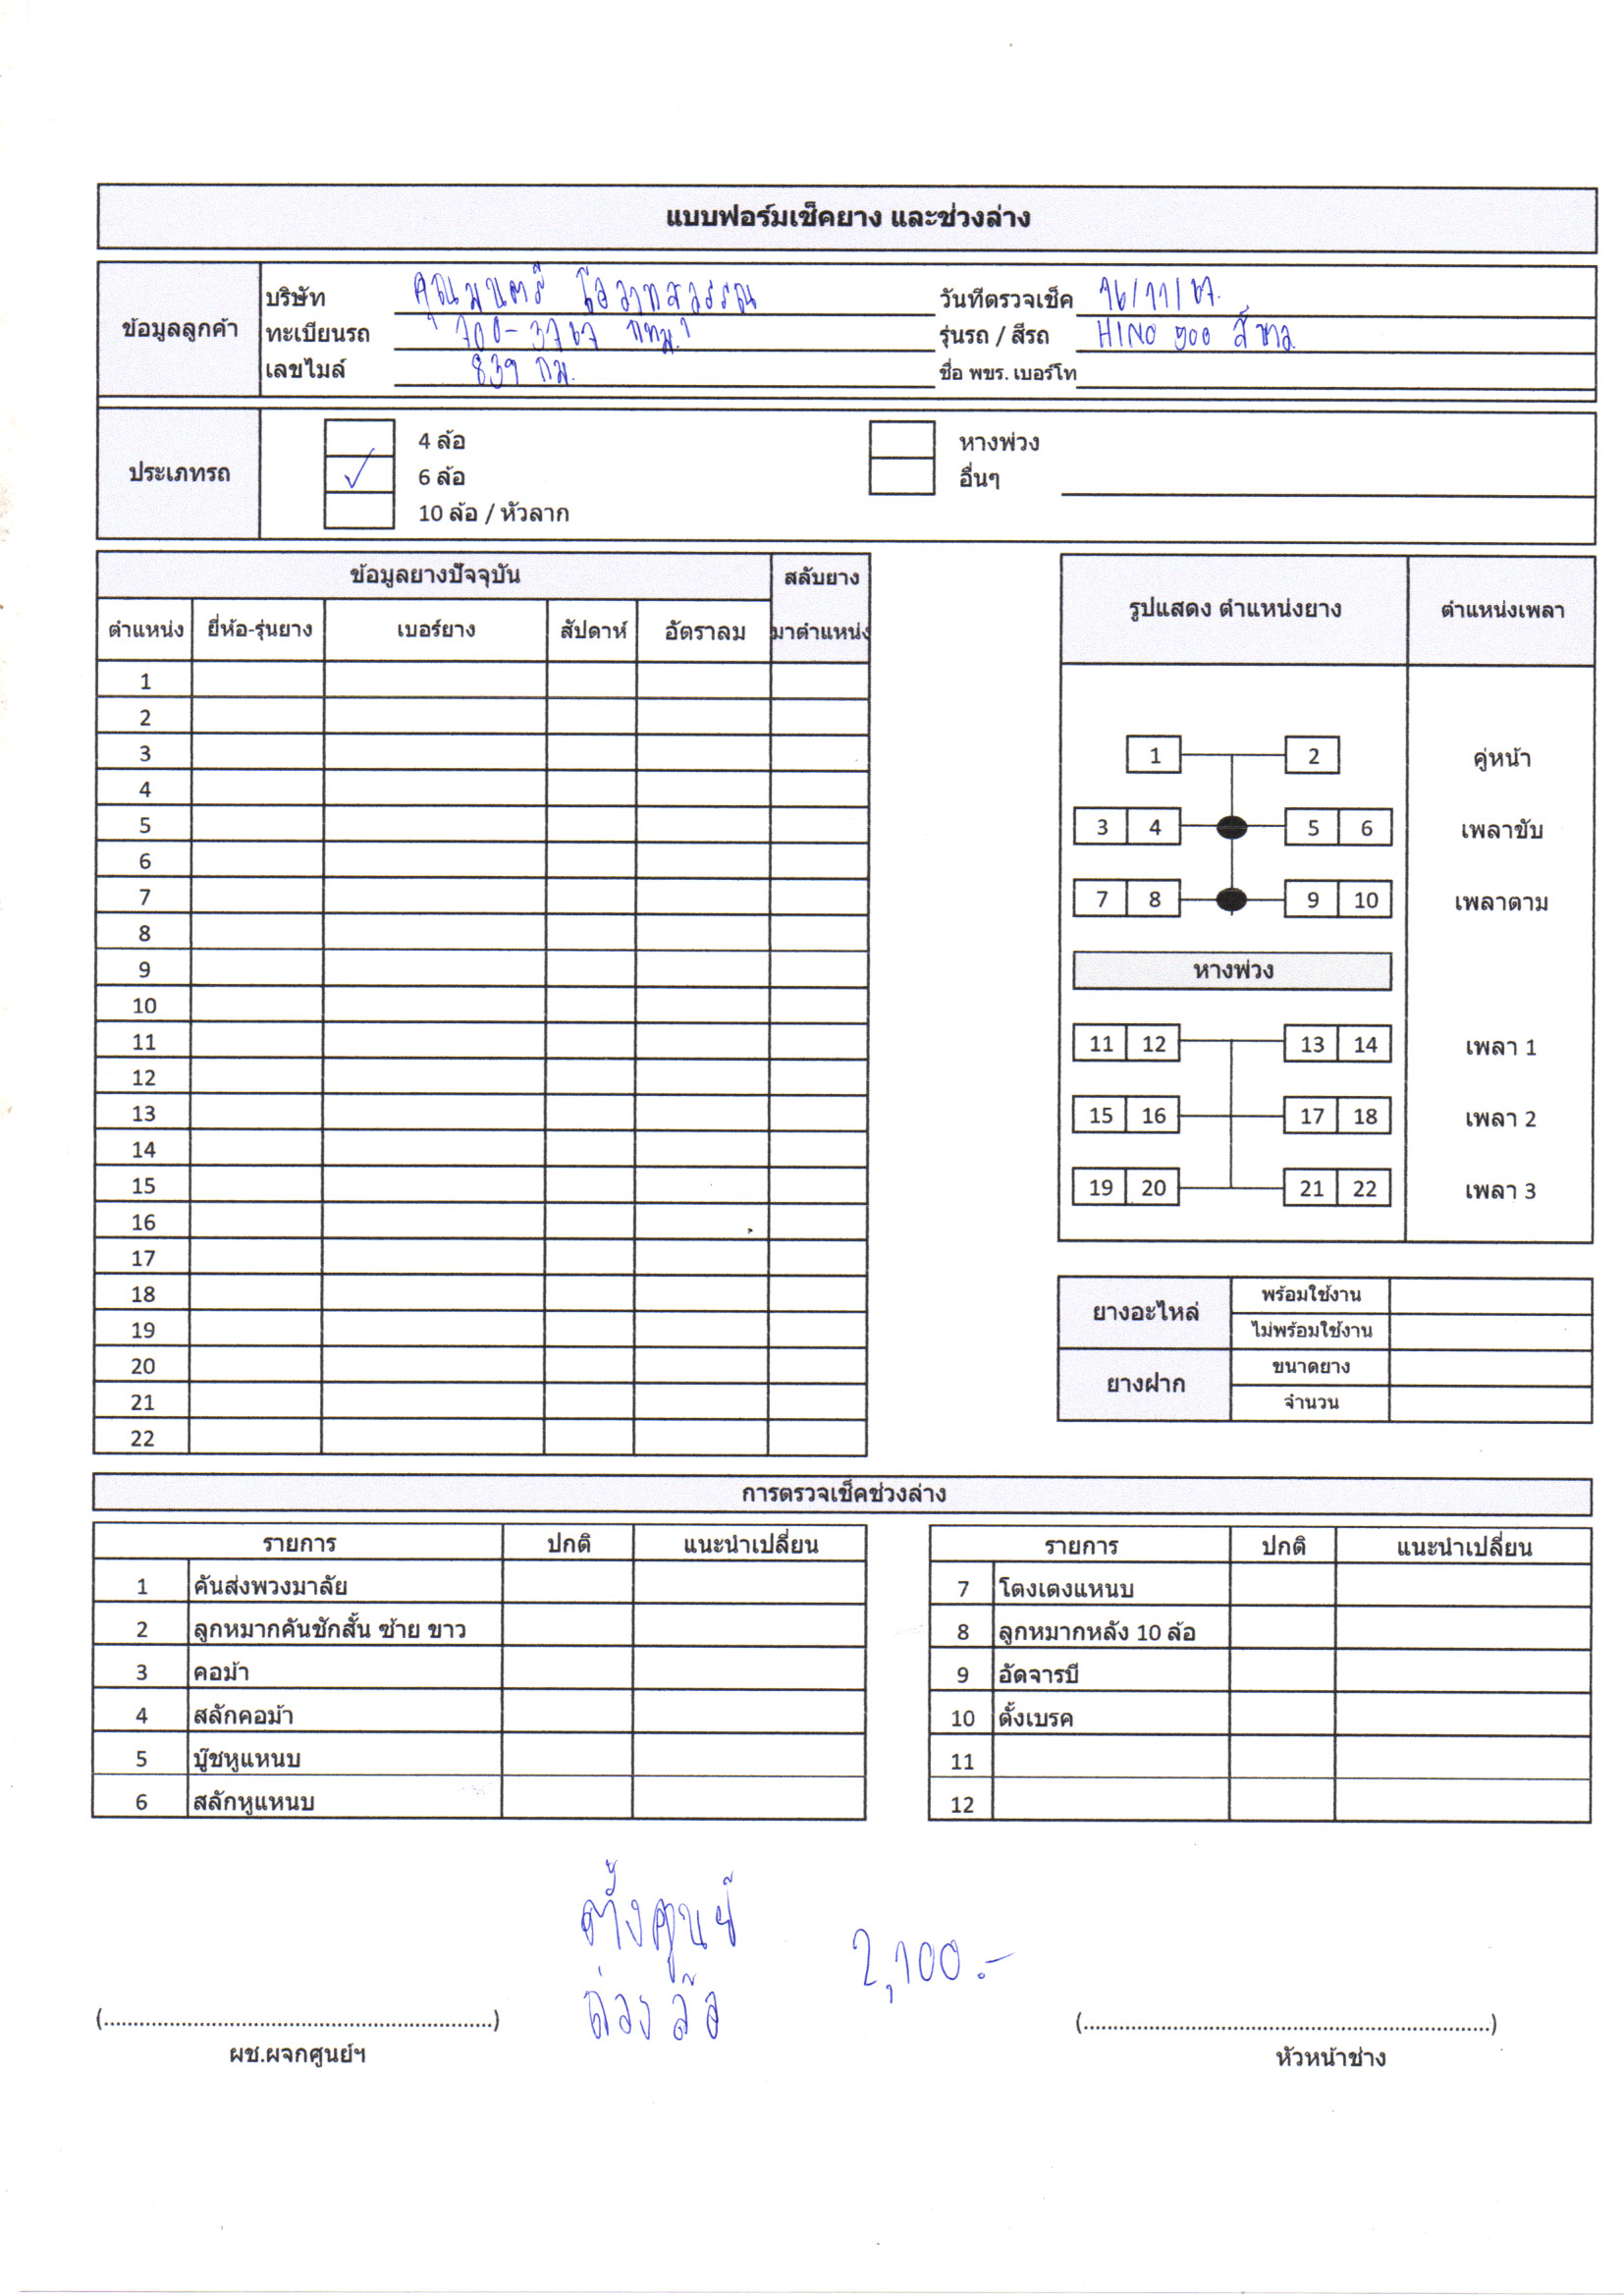 แบบฟอร์มเช็คยาง และช่วงล่าง
ข้อมูลลูกค้า
บริษัท คุณมนตรี โอวาทสวรรณ วันที่ตรวจเช็ค 16/11/67.
ทะเบียนรถ 700-3767 กทม. รุ่นรถ / สีรถ HINO 500 สีขาว
เลขไมล์ 839 กม. ชื่อ พขร. เบอร์โท
ประเภทรถ
4 ล้อ หางพ่วง
✓ 6 ล้อ อื่นๆ
10 ล้อ / หัวลาก
ข้อมูลยางปัจจุบัน สลับยาง
ตำแหน่ง ยี่ห้อ-รุ่นยาง เบอร์ยาง สัปดาห์ อัตราลม มาตำแหน่ง
1
2
3
4
5
6
7
8
9
10
11
12
13
14
15
16
17
18
19
20
21
22
รูปแสดง ตำแหน่งยาง ตำแหน่งเพลา
1 2 คู่หน้า
3 4 5 6 เพลาขับ
7 8 9 10 เพลาตาม
หางพ่วง
11 12 13 14 เพลา 1
15 16 17 18 เพลา 2
19 20 21 22 เพลา 3
ยางอะไหล่ พร้อมใช้งาน
ไม่พร้อมใช้งาน
ยางฝาก ขนาดยาง
จำนวน
การตรวจเช็คช่วงล่าง
รายการ ปกติ แนะนำเปลี่ยน
1 คันส่งพวงมาลัย
2 ลูกหมากคันชักสั้น ซ้าย ขาว
3 คอม้า
4 สลักคอม้า
5 บู๊ชหูแหนบ
6 สลักหูแหนบ
รายการ ปกติ แนะนำเปลี่ยน
7 โตงเตงแหนบ
8 ลูกหมากหลัง 10 ล้อ
9 อัดจารบี
10 ตั้งเบรค
11
12
ตั้งศูนย์
ถ่วงล้อ 2,100.-
(.................................................................)
ผช.ผจกศูนย์ฯ
(.....................................................................)
หัวหน้าช่าง